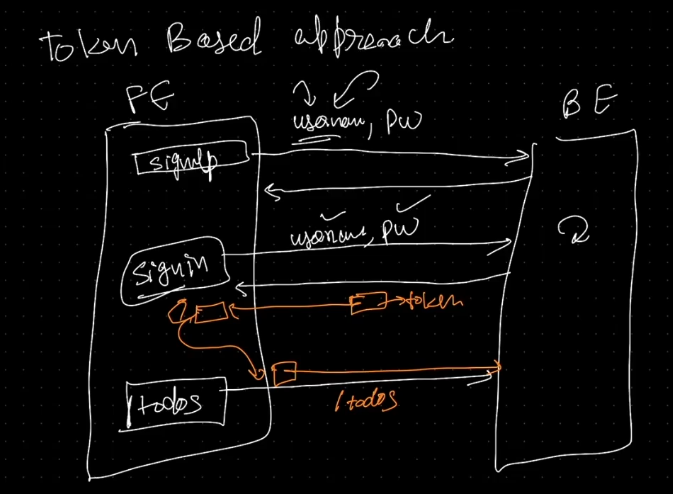 Token Based approach
FE
BE
username, pw
signup
username, pw
signin
token
/todos
/todos